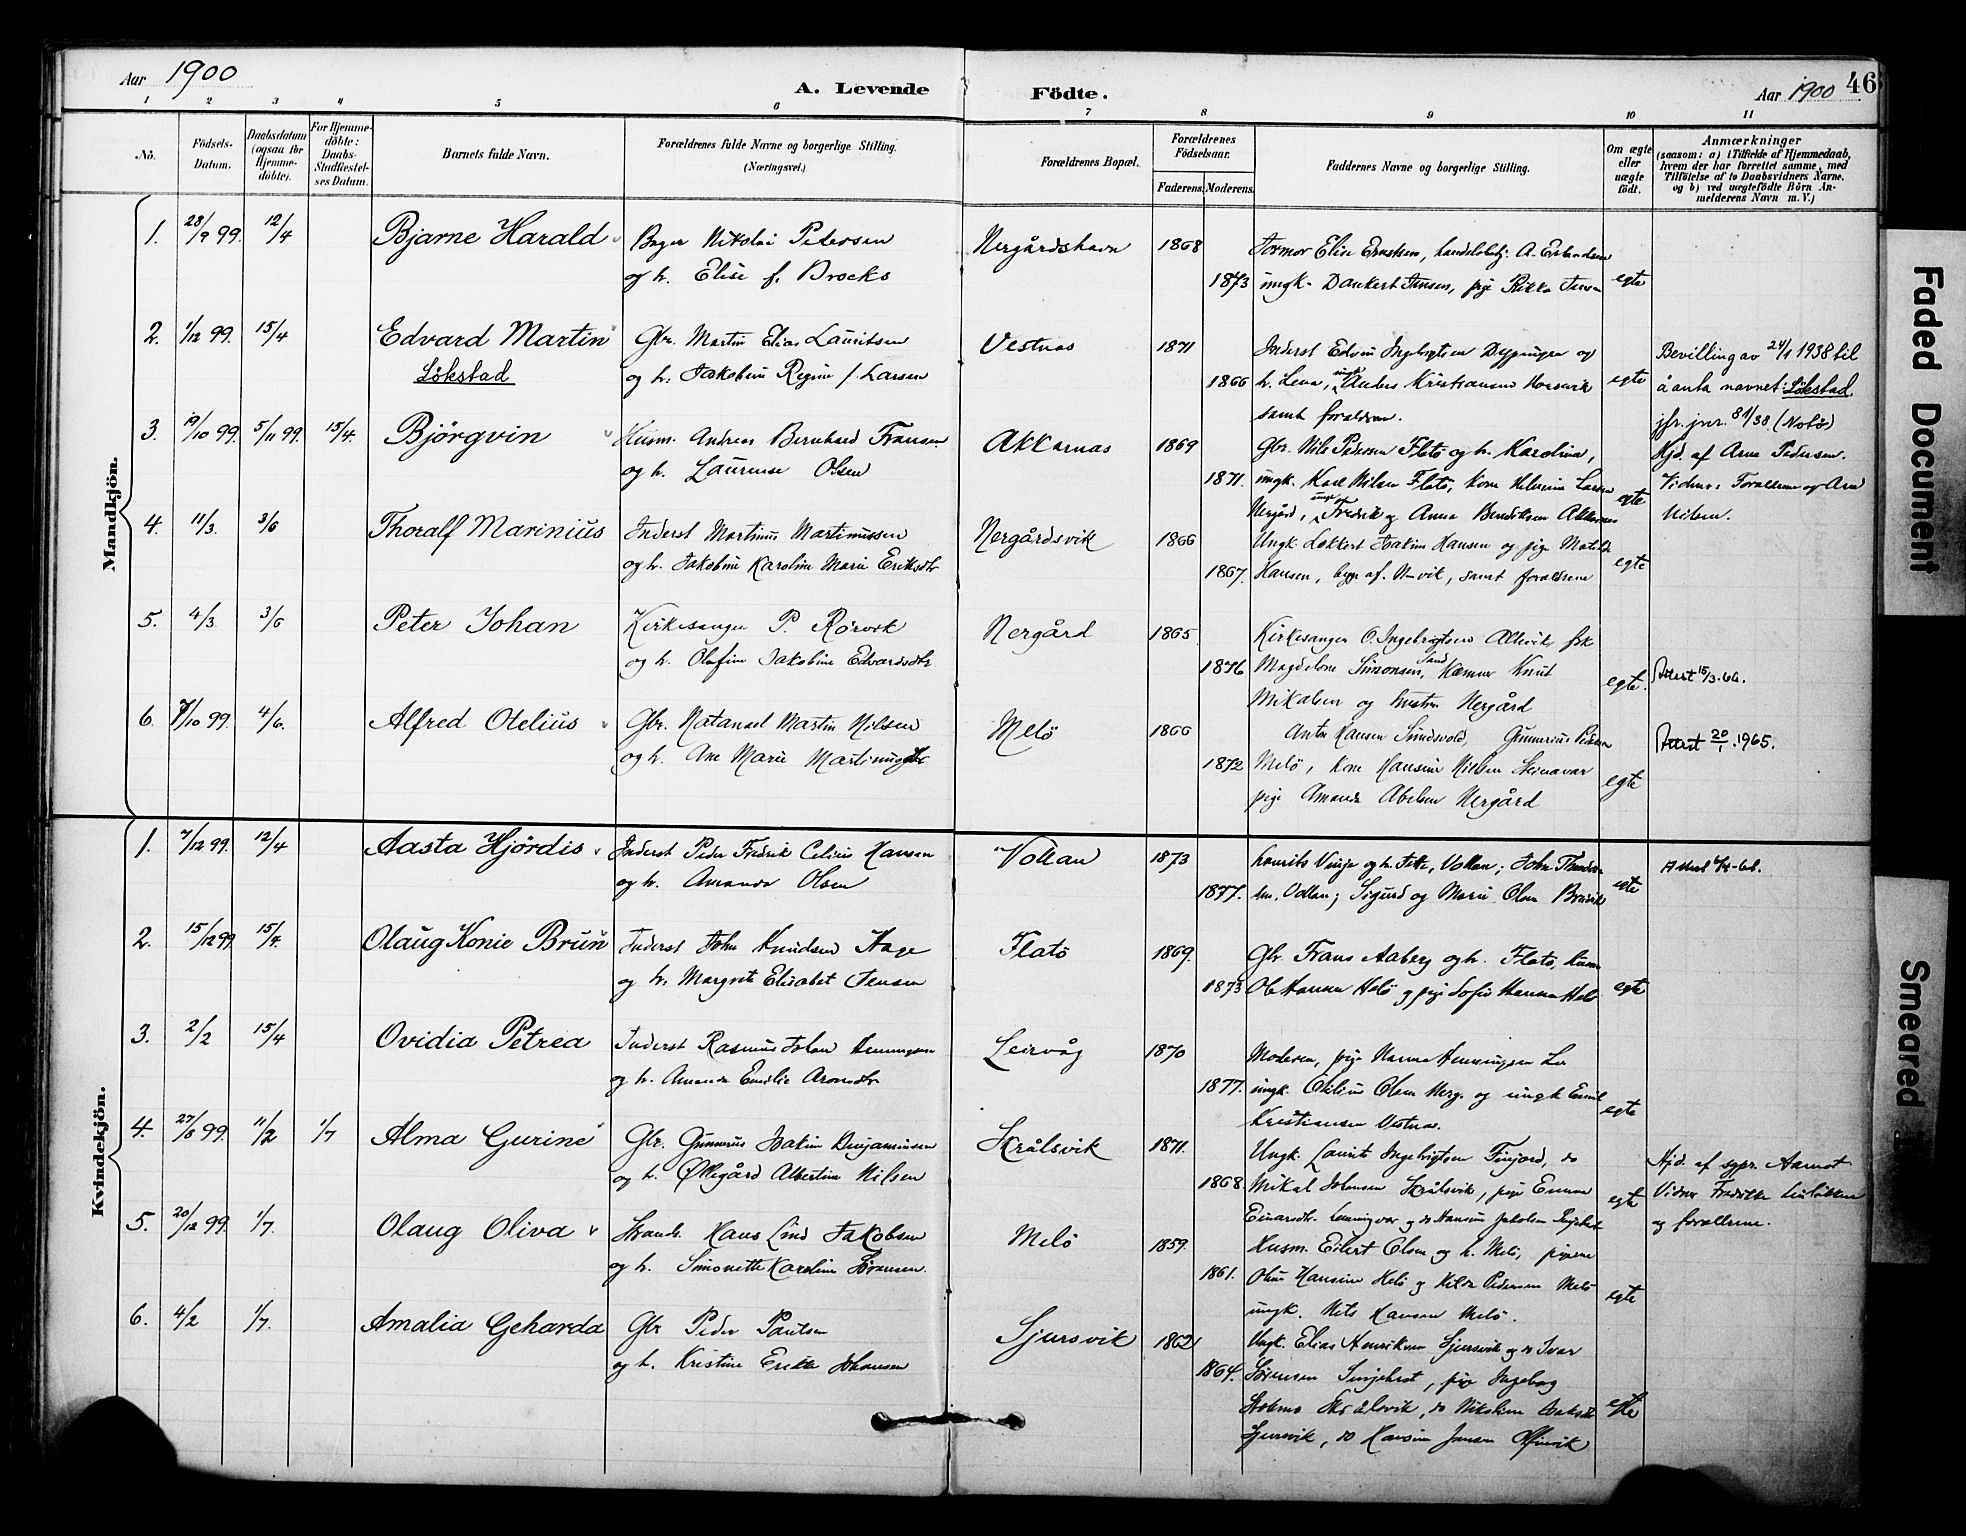 Aar 1900
A. Levende Födte.
Aar 1900 46
1 2 3 4 5 6 7 8 9 10 11
No.
Födsels-Datum.
Daabsdatum (ogsaa for Hjemme-döbte).
For Hjemme-döbte: Daabs-Stadfæstel-ses Datum.
Barnets fulde Navn.
Forældrenes fulde Navne og borgerlige Stilling. (Næringsvei.)
Forældrenes Bopæl.
Forældrenes Födselsaar.
Faderens. Moderens.
Faddernes Navne og borgerlige Stilling.
Om ægte eller uægte födt.
Anmærkninger
(saasom: a) i Tilfælde af Hjemmedaab, hvem der har forrettet samme, med Tilföielse af to Daabsvidners Navne, og b) ved uægtefödte Börn Anmelderens Navn m. V.)
Mandkjön.
1. 28/9 99. 12/4 Bjarne Harald Bager Nikolai Petersen Nergårdshavn 1868 Farmor Elise Erntsen, handelsbetj. A. Erlandsen
og h. Elise f. Brocks 1873 ungk. Dankert Jensen, pige Rikka Jensen egte
2. 1/12 99. 15/4 Edvard Martin Gbr. Martin Elias Lauritsen Vestnes 1871 Inderst Edvin Ingebrigtsen Dypingen og Bevilling av 24/1 1938 til
Lökstad og h. Jakobine Regine f. Larsen 1866 h. Lena, ungk. Anders Kristiansen egte å anta navnet: Lökstad
samt forældrene. jfr. jnr. 81/38 (Notö)
3. 19/10 99. 5/11 99. 15/4. Björgvin Husm. Andreas Bernhard Fransen Akkarnæs 1869 Gbr. Nils Pedersen Flatö og h. Karolina, Hjd. af Arne Pedersen.
og h. Laurense Olsen 1871. ungk. Karl Nilsen Flatö, Kone Helmine Larsen egte Vidner: Forældrene og Arn
Nergård, ungk. Fredrik og Anna Bendiksen Akkarnes Nilsen.
4. 11/3. 3/6 Thoralf Marinius Inderst Martinus Martinussen Nergårdsvik 1866 Ungk. Lokkert Joakim Hansen og pige Matilde
og h. Jakobine Karoline Marie Eriksdtr. 1867. Hansen, begge af N-vik, samt forældrene egte
5. 4/3. 3/6 Peter Johan Kirkesanger P. Rörvik Nergård 1865 Kirkesanger O. Ingebrigtsen Altevik, frk
og h. Olafine Jakobine Edvardsdtr. 1876 Magdelone Simonsen, Sand, Kæmner Knut egte. Attest 15/3-66.
Mikalsen og hustru Nergård
6. 7/10 99. 4/6. Alfred Otelius Gbr. Natanael Martin Nilsen Melö 1866 Anton Hansen Sundsvold, Gunnerius Pedersen Attest 20/1. 1965.
og h. Ane Marie Martinusdtr. 1872 Melö, Kone Hansine Nilsen Steinavær egte
pige Amanda Abelsen Nergård
Kvindekjön.
1. 7/12 99. 12/4 Aasta Hjördis Inderst Peder Fredrik Celius Hansen Vollan 1873 Laurits Vinje og h. Jette, Vollan; John Theodor-
og h. Amanda Olsen 1877. sen, Vollan; Sigurd og Marie Olsen Breivik egte
2. 15/12 99 15/4. Olaug Konie Brun Inderst John Knudsen Hage Flatö 1869. Gbr. Frans Aaberg og h. Flatö, Husm
og h. Margrete Elisabet Jensen 1873 Ole Hansen Melö og pige Sofie Hansen Melö egte
3. 2/2 15/4 Ovidia Petrea Inderst Rasmus Johan Henningsen Leirvåg 1870 Moderen, pige Hanna Henningsen
og h. Amanda Emilie Aronsdtr. 1877. ungk. Otilius Olsen Nerg. og ungk Emil egte
Kristiansen Vestnes.
4. 27/8 99. 11/2 1/7 Alma Gurine Gbr. Gunnerus Joakim Benjaminsen Skrålsvik 1871. Ungk. Laurits Ingebrigtsen Finjord, do Hjd. af sgpr. Aamot
og h. Ollegård Albertine Nilsen 1868. Mikal Johansen Skrålsvik, pige Emma egte Vidner Fredrikke
Einarsdtr. Lemmingvær og do Hansine Jakobsen og forældrene.
5. 20/12 99. 1/7. Olaug Oliva Strands. Hans Lind Jakobsen Melö 1859. Husm. Eilert Olsen og h. Melö, pigerne
og h. Simonette Karoline Sörensen. 1861. Oline Hansine Melö og Hilda Pedersen Melö egte
ungk. Nils Hansen Melö.
6. 4/2 1/7. Amalia Geharda Gbr Peder Paulsen Sjursvik 1862 Ungk. Elias Henriksen Sjursvik og do Ivar
og h. Kristine Erikke Johansen 1864. Sörensen, pige Ingeborg
Skrålsvik, do Nikoline egte
Sjursvik, do Hansine Jensen
Faded Document
Smeared